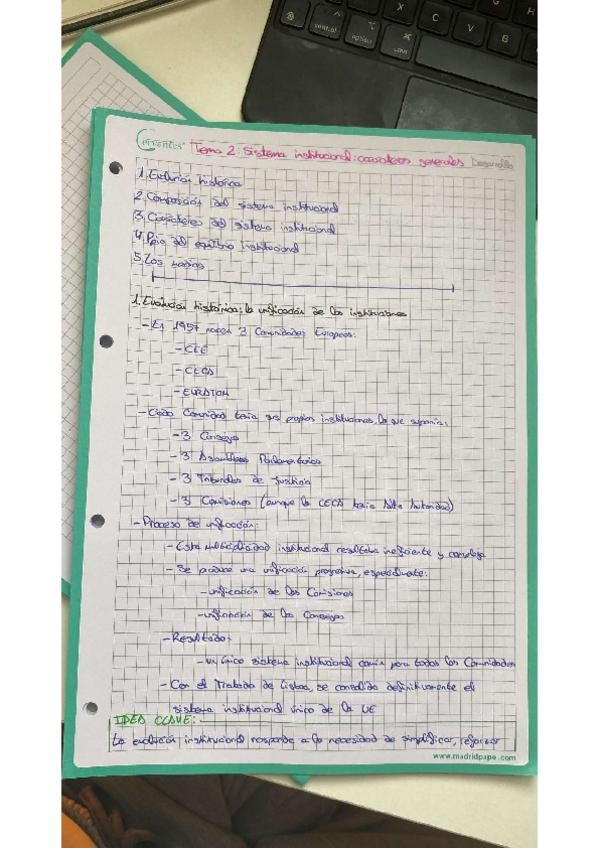 Tema 2: Sistema institucional: caracteres generales Desarrollo
1. Evolución histórica
2. Composición del sistema institucional
3. Caracteres del sistema institucional
4. Ppio del equilibrio institucional
5. Los
1. Evolución histórica: la unificación de las instituciones
- En 1957 nacen 3 Comunidades Europeas:
- CEE
- CECA
- EURATOM
- Cada Comunidad tenía sus propias instituciones, lo que suponía:
- 3 Consejos
- 3 Asambleas Parlamentarias
- 3 Tribunales de Justicia
- 3 Comisiones (aunque la CECA tenía Alta Autoridad)
- Proceso de unificación:
- Esta multiplicidad institucional resultaba ineficiente y compleja
- Se produce una unificación progresiva, especialmente:
- unificación de las Comisiones
- unificación de los Consejos
- Resultado:
- un único sistema institucional común para todas las Comunidades
- Con el Tratado de Lisboa, se consolida definitivamente el
sistema institucional único de la UE
IDEA CLAVE:
La evolución institucional responde a la necesidad de simplificar, reforzar
www.madridpapel.com
control
option
cmd
X
C
V
B
N